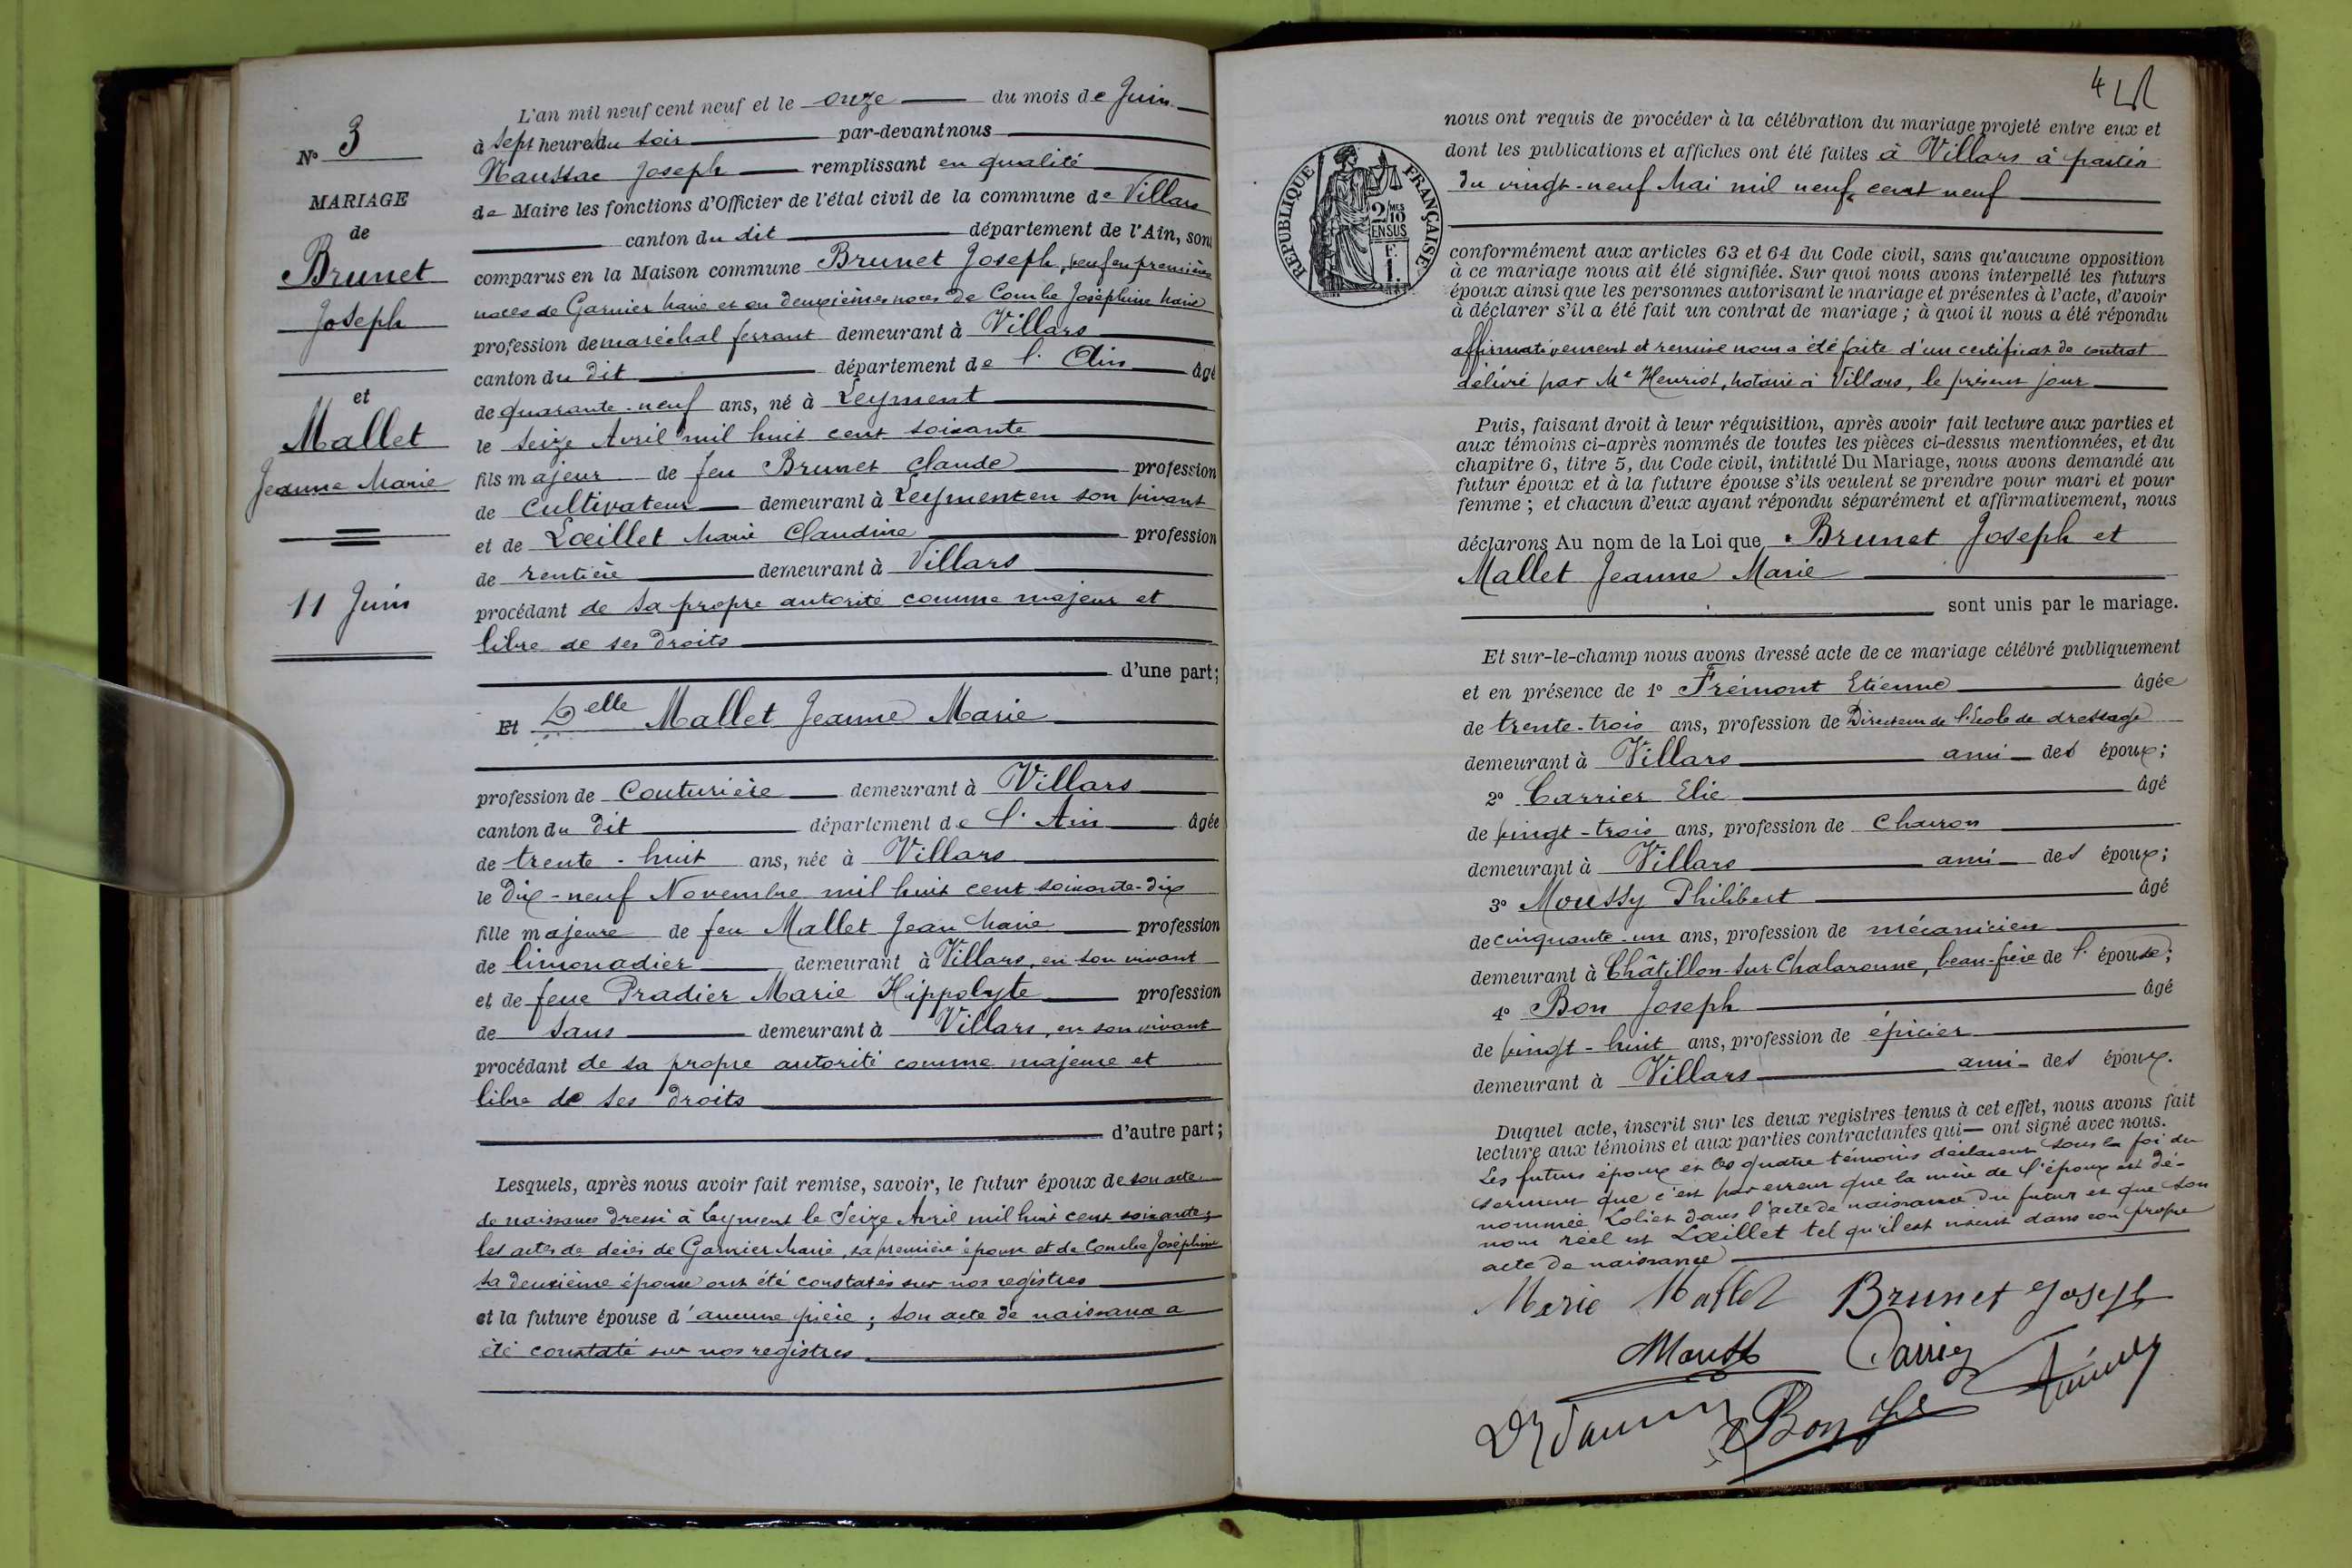 N° 3
MARIAGE
de
Brunet
Joseph
et
Mallet
Jeanne Marie
11 Juin
L'an mil neuf cent neuf et le onze du mois de Juin
à sept heures du soir par-devant nous
Naussac Joseph remplissant en qualité
de Maire les fonctions d'Officier de l'état civil de la commune de Villars
canton du dit département de l'Ain, sont
comparus en la Maison commune Brunet Joseph, veuf en premières
noces de Garnier Marie et en deuxièmes noces de Combe Joséphine Marie
profession de maréchal ferrant demeurant à Villars
canton du dit département de l'Ain âgé
de quarante-neuf ans, né à Leyment
le seize Avril mil huit cent soixante
fils majeur de feu Brunet Claude profession
de cultivateur demeurant à Leyment en son vivant
et de Lœillet Marie Claudine profession
de rentière demeurant à Villars
procédant de sa propre autorité comme majeur et
libre de ses droits
d'une part;
Et Delle Mallet Jeanne Marie
profession de couturière demeurant à Villars
canton du dit département de l'Ain âgée
de trente-huit ans, née à Villars
le dix-neuf Novembre mil huit cent soixante-dix
fille majeure de feu Mallet Jean Marie profession
de limonadier demeurant à Villars, en son vivant
et de feue Pradier Marie Hippolyte profession
de sans demeurant à Villars, en son vivant
procédant de sa propre autorité comme majeure et
libre de ses droits
d'autre part;
Lesquels, après nous avoir fait remise, savoir, le futur époux de son acte
de naissance dressé à Leyment le Seize Avril mil huit cent soixante;
les actes de décès de Garnier Marie, sa première épouse et de Combe Joséphine
sa deuxième épouse ont été constatés sur nos registres
et la future épouse d'aucune pièce; son acte de naissance a
été constaté sur nos registres
4
RÉPUBLIQUE FRANÇAISE
2/10 MES
EN SUS
F.
1.
nous ont requis de procéder à la célébration du mariage projeté entre eux et
dont les publications et affiches ont été faites à Villars à partir
du vingt-neuf Mai mil neuf cent neuf
conformément aux articles 63 et 64 du Code civil, sans qu'aucune opposition
à ce mariage nous ait été signifiée. Sur quoi nous avons interpellé les futurs
époux ainsi que les personnes autorisant le mariage et présentes à l'acte, d'avoir
à déclarer s'il a été fait un contrat de mariage; à quoi il nous a été répondu
affirmativement et remise nous a été faite d'un certificat de contrat
délivré par Me Henriot, notaire à Villars, le présent jour
Puis, faisant droit à leur réquisition, après avoir fait lecture aux parties et
aux témoins ci-après nommés de toutes les pièces ci-dessus mentionnées, et du
chapitre 6, titre 5, du Code civil, intitulé Du Mariage, nous avons demandé au
futur époux et à la future épouse s'ils veulent se prendre pour mari et pour
femme; et chacun d'eux ayant répondu séparément et affirmativement, nous
déclarons Au nom de la Loi que Brunet Joseph et
Mallet Jeanne Marie
sont unis par le mariage.
Et sur-le-champ nous avons dressé acte de ce mariage célébré publiquement
et en présence de 1° Frémont Etienne âgée
de trente-trois ans, profession de Directeur de l'Ecole de dressage
demeurant à Villars ami des époux;
2° Carrier Elie âgé
de vingt-trois ans, profession de charron
demeurant à Villars ami des époux;
3° Moussy Philibert âgé
de cinquante-un ans, profession de mécanicien
demeurant à Châtillon-sur-Chalaronne, beau-frère de l'épouse;
4° Bon Joseph âgé
de vingt-huit ans, profession de épicier
demeurant à Villars ami des époux.
Duquel acte, inscrit sur les deux registres tenus à cet effet, nous avons fait
lecture aux témoins et aux parties contractantes qui ont signé avec nous.
Les futurs époux et les quatre témoins déclarent sous la foi du
serment que c'est par erreur que la mère de l'époux est dé-
nommée Loliet dans l'acte de naissance du futur et que son
nom réel est Lœillet tel qu'il est inscrit dans son propre
acte de naissance
Marie Mallet Brunet Joseph
Moussy Carrier
Bon